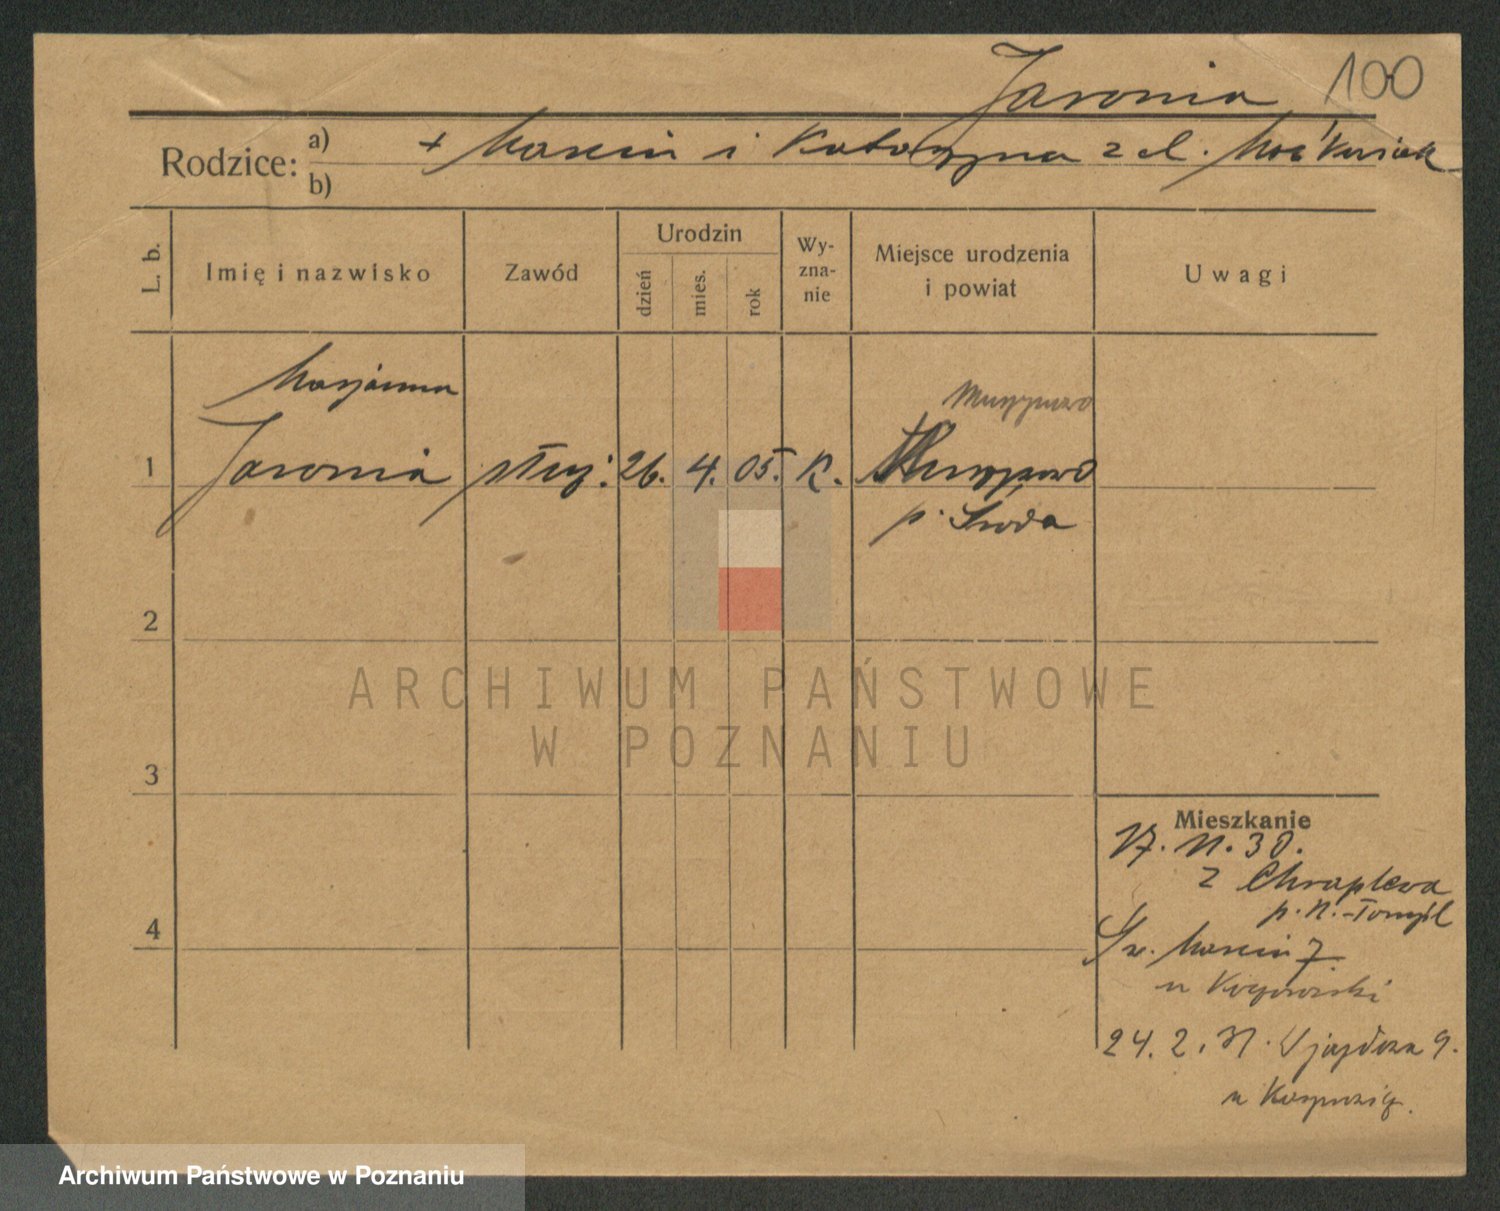 Jaronia 100
Rodzice: a) + Marcin i Katarzyna z d.
b)
L. b.
Imię i nazwisko
Zawód
Urodzin
dzień
mies.
rok
Wy-
zna-
nie
Miejsce urodzenia
i powiat
Uwagi
Marjanna
1 Jaronia służ. 26. 4. 05. K.
p. Środa
2
3
4
Mieszkanie
17. 11. 30.
z Chraplewa
p. N.-Tomyśl
Św. Marcin 7
u
24. 2. 31. Ujazdowa 9.
u
ARCHIWUM PAŃSTWOWE
W POZNANIU
Archiwum Państwowe w Poznaniu